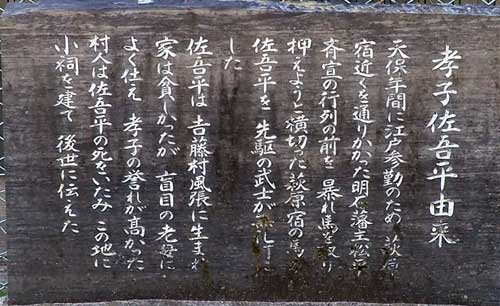 孝子佐吾平由来
天保年間に江戸参勤のため 萩原
宿近くを通りかかった明石藩主松平
斉宣の行列の前を 暴れ馬を取り
押えようと横切った萩原宿の馬
佐吾平を 先駆の武士が 無礼打に
した
佐吾平は 吉藤村風張に生まれ
家は貧しかったが 盲目の老母に
よく仕え 孝子の誉れが高かった
村人は佐吾平の死をいたみ この地に
小祠を建て 後世に伝えた